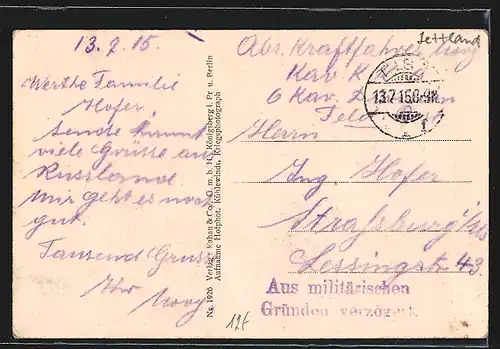 13.7.15.
Werthe Familie
Hofer,
Sende
viele Grüsse aus
Russland.
Mir geht es noch
gut.
Tausend Gruss
Ihr
No. 1926 Verlag: & Co., G. m. b. H., Königsberg i. Pr u. Berlin
Aufnahme Hofphot. Kühlewindt, Kriegsphotograph
12f
Lettland
Abs. Kraftfahrer
Kav
6 Kav.
Herrn
Ing. Hofer
Straßburg i/Els
Lessingstr 43.
13.7.15.8-9N.
Aus militärischen
Gründen verzögert.